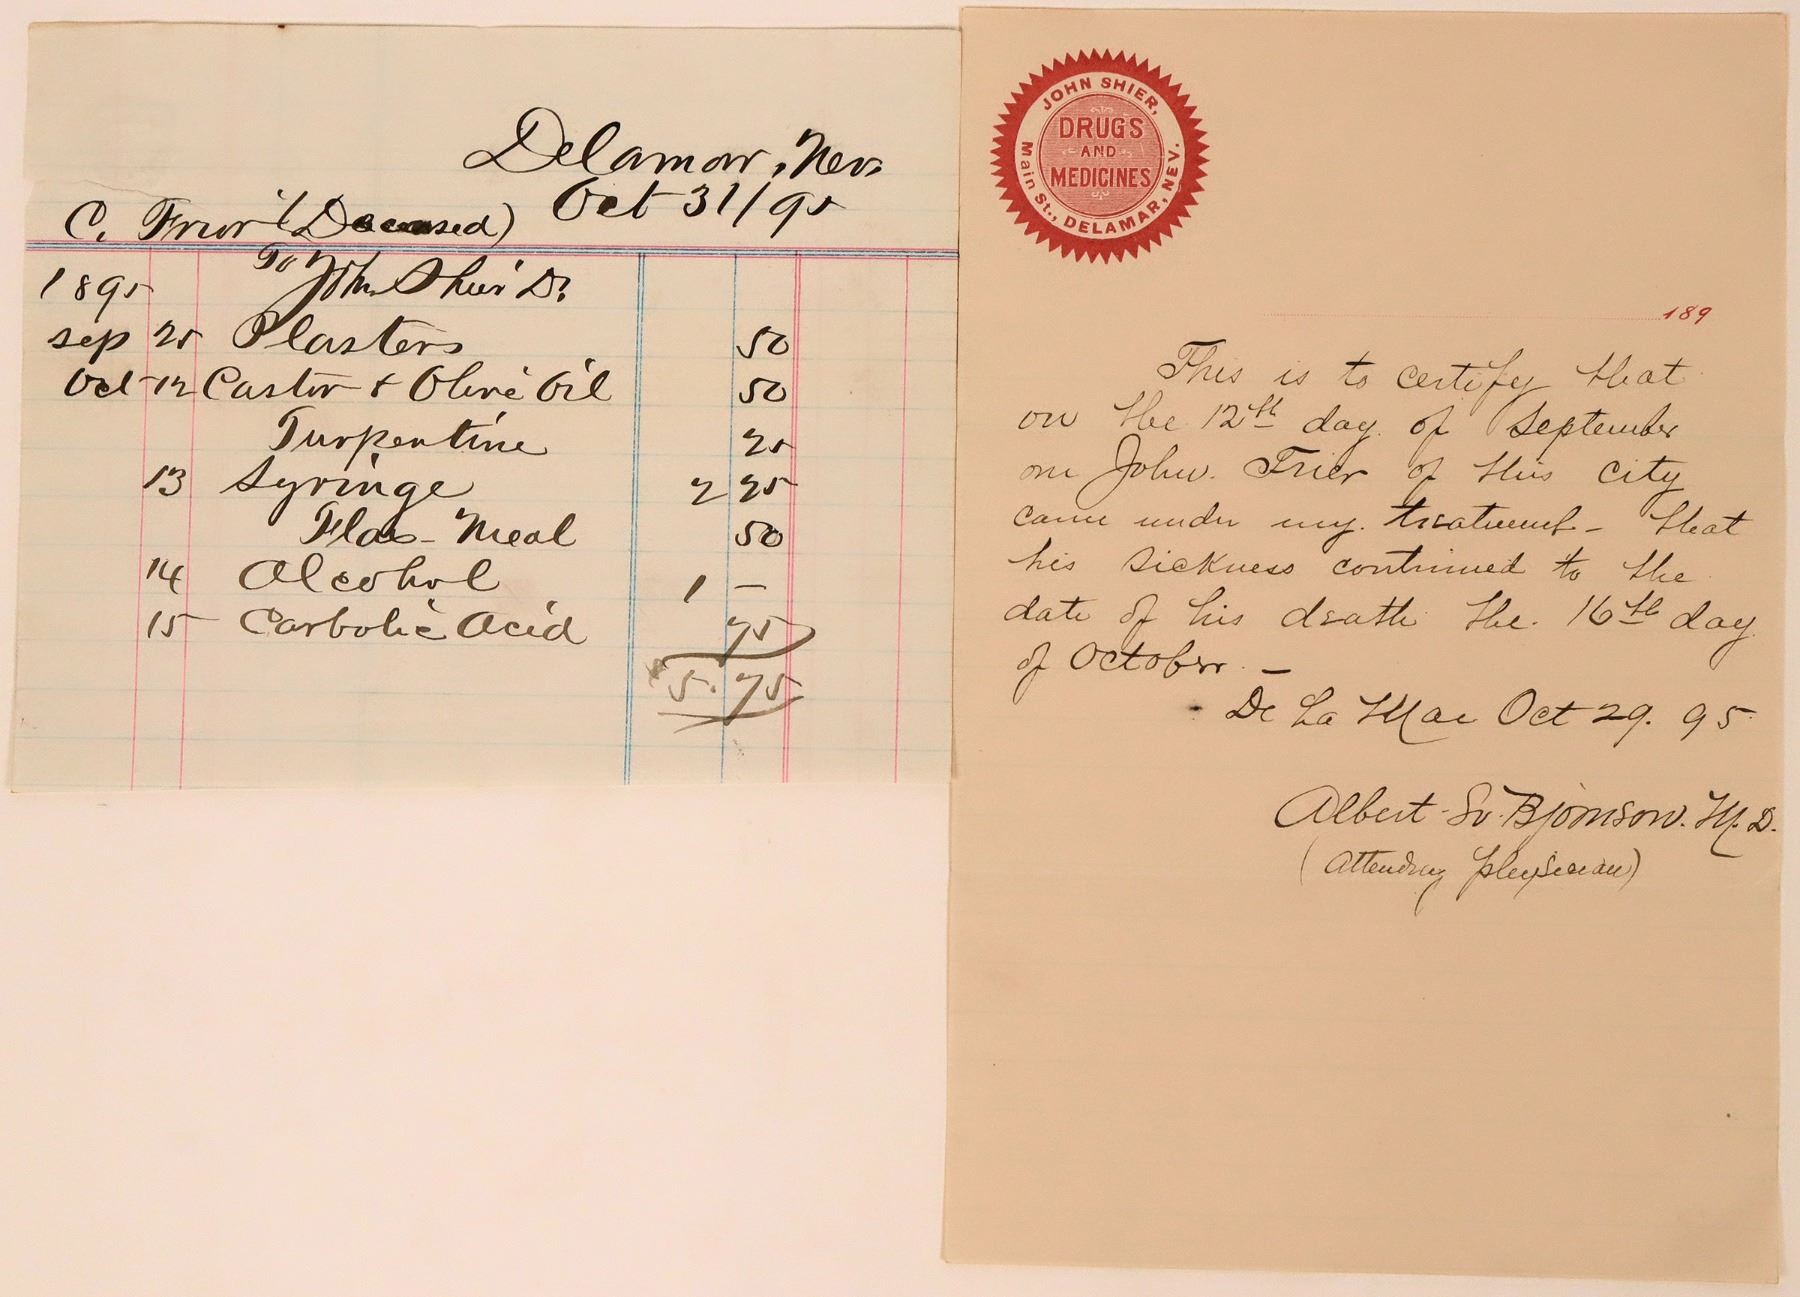 Delamar, Nev.
Oct 31/95
C. Frier (Deceased)
To John Shier Dr
1895
Sep 25 Plasters 50
Oct 12 Castor & Olive Oil 50
Turpentine 25
13 Syringe 2 25
Flax-Meal 50
14 Alcohol 1 —
15 Carbolic Acid 75
$5.75
JOHN SHIER,
DRUGS
AND
MEDICINES
Main St., DELAMAR, NEV.
189
This is to certify that
on the 12th day of September
one John Frier of this city
came under my treatment - that
his sickness continued to the
date of his death the 16th day
of October. —
De La Mar Oct 29. 95
Albert Bjornson. M.D.
(Attending physician)